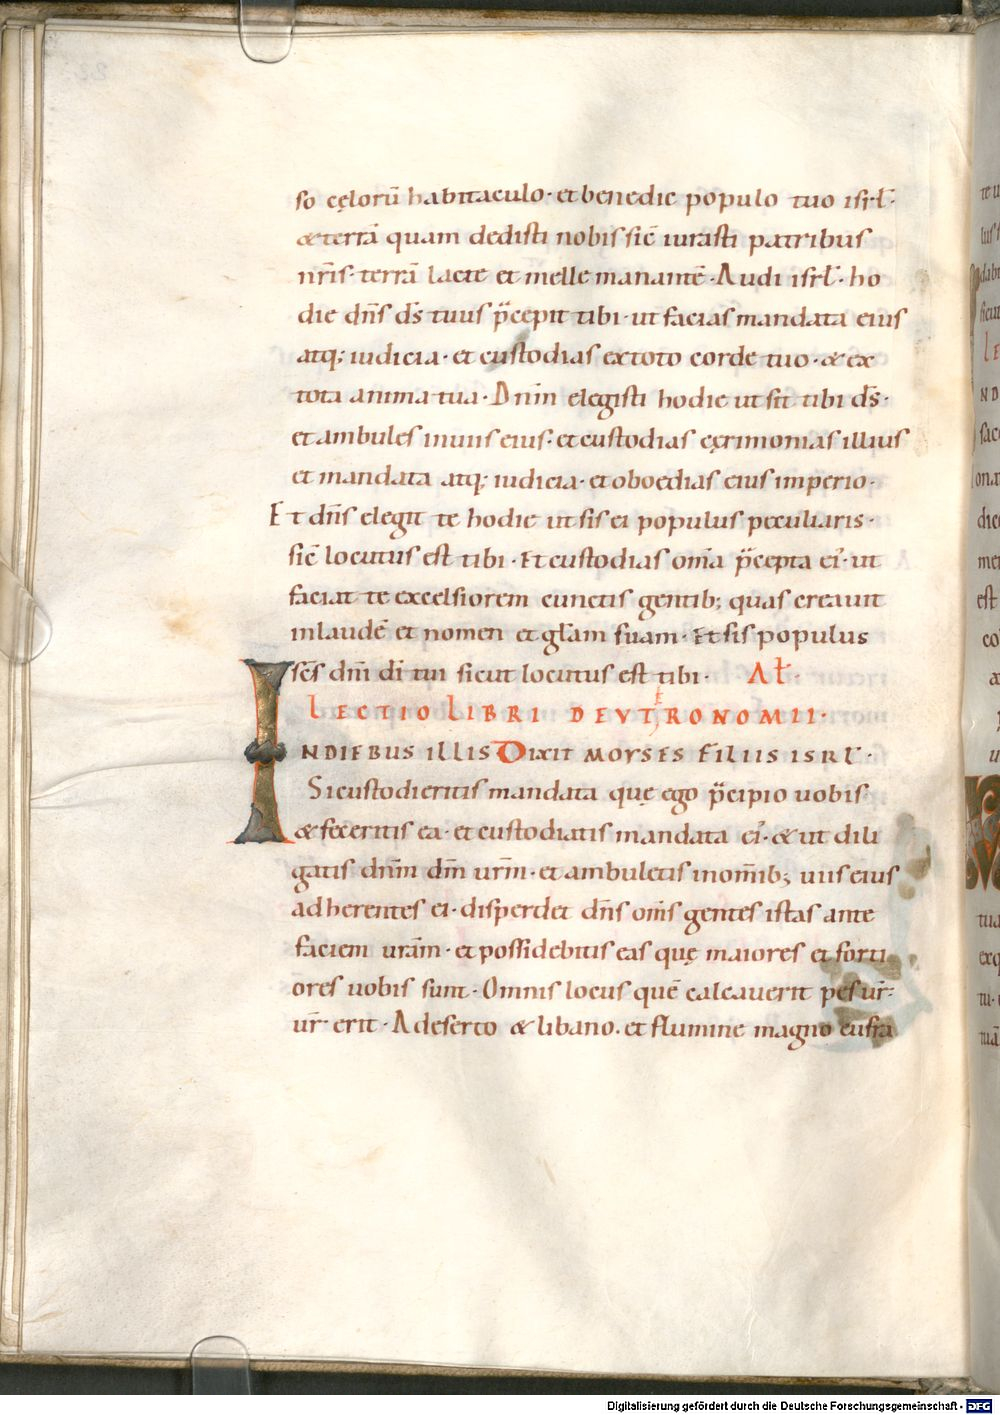 so cęlorū habitaculo · et benedic populo tuo isrł ·
& terrā quam dedisti nobis sic̄ iurasti patribus
nr̄is · terrā lacte et melle manantē · Audi isrł · ho
die dn̄s ds̄ tuus p̄cepit tibi · ut facias mandata eius
atq; iudicia · et custodias ex toto corde tuo · & ex
tota anima tua · Dn̄m elegisti hodie ut sit tibi ds̄ ·
et ambules in uiis eius · et custodias cęrimonias illius
et mandata atq; iudicia · et oboedias eius imperio ·
Et dn̄s elegit te hodie ut sis ei populus peculiaris ·
sic̄ locutus est tibi · Et custodias om̄a p̄cepta ei' · ut
faciat te excelsiorem cunctis gentib; quas creauit
in laudē et nomen et glā̄m suam · Et sis populus
sc̄s dn̄i dī tui sicut locutus est tibi · Ał ·
LECTIO LIBRI DEVTRONOMII ·
IN DIEBUS ILLIS DIXIT MOYSES FILIIS ISRL ·
Si custodieritis mandata quę ego p̄cipio uobis ·
& feceritis ea · et custodiatis mandata ei' · & ut dili
gatis dn̄m dm̄ ur̄m · et ambuletis in om̄ib; uiis eius
adherentes ei · disperdet dn̄s om̄s gentes istas ante
faciem urā̄m · et possidebitis eas quę maiores et forti
ōres uobis sunt · Omnis locus quē calcauerit pes ur̄ ·
ur̄ erit · A deserto & libano · et flumine magno eufra
Digitalisierung gefördert durch die Deutsche Forschungsgemeinschaft - DFG